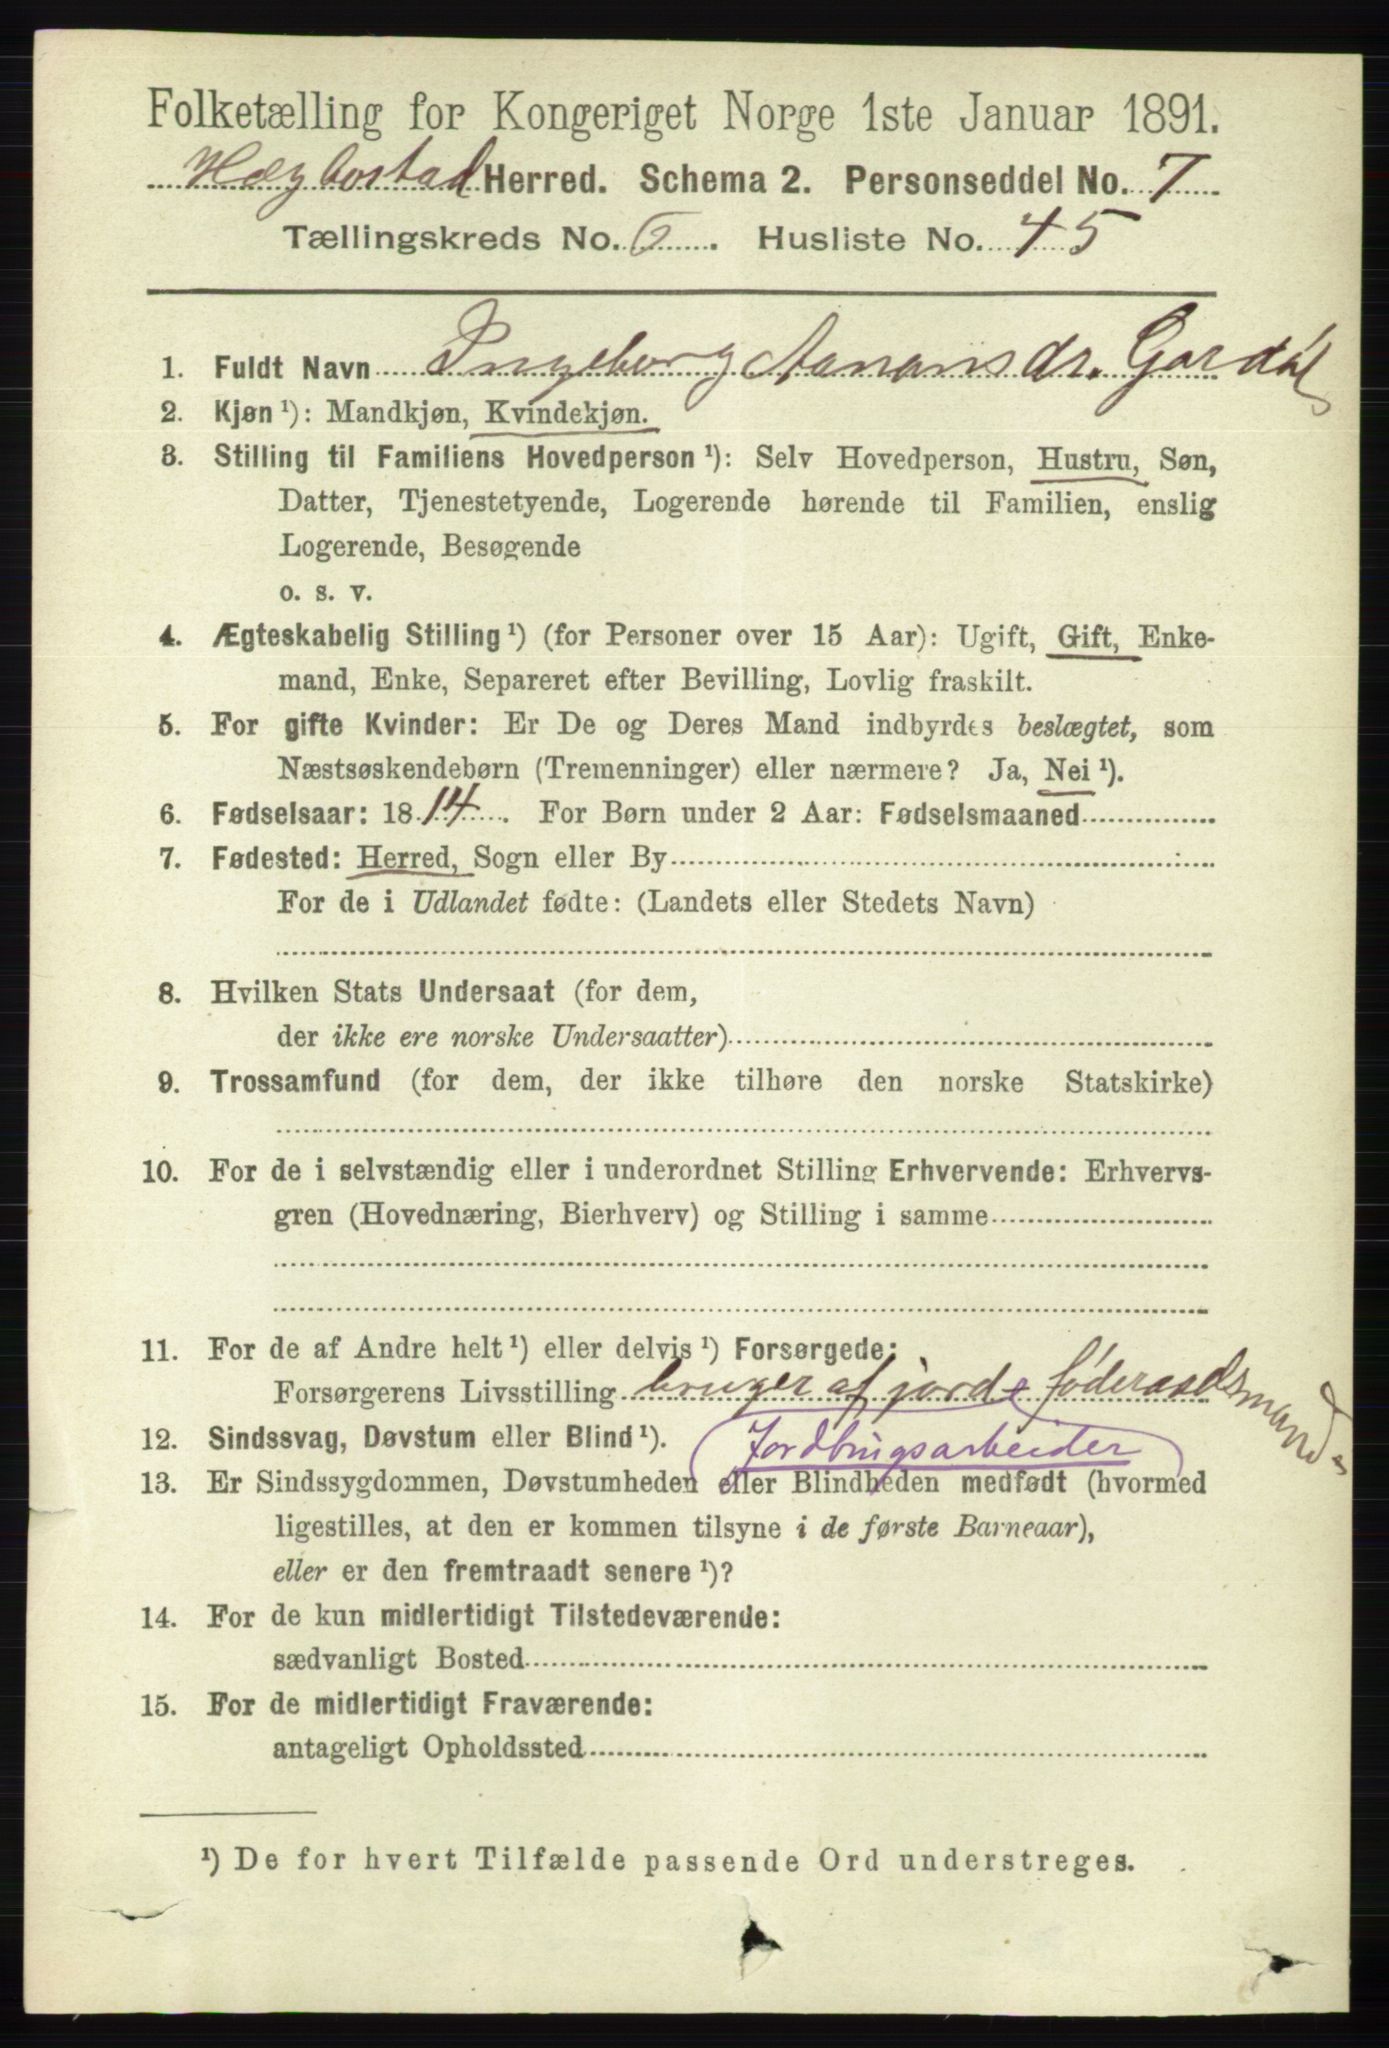 Folketælling for Kongeriget Norge 1ste Januar 1891.
Hægbostad Herred. Schema 2. Personseddel No. 7
Tællingskreds No. 6. Husliste No. 45
1. Fuldt Navn Ingeborg Aanonsdr. Gardål
2. Kjøn ¹): Mandkjøn, Kvindekjøn.
3. Stilling til Familiens Hovedperson ¹): Selv Hovedperson, Hustru, Søn,
Datter, Tjenestetyende, Logerende hørende til Familien, enslig
Logerende, Besøgende
o. s. v.
4. Ægteskabelig Stilling ¹) (for Personer over 15 Aar): Ugift, Gift, Enke-
mand, Enke, Separeret efter Bevilling, Lovlig fraskilt.
5. For gifte Kvinder: Er De og Deres Mand indbyrdes beslægtet, som
Næstsøskendebørn (Tremenninger) eller nærmere? Ja, Nei ¹).
6. Fødselsaar: 1814. For Børn under 2 Aar: Fødselsmaaned
7. Fødested: Herred, Sogn eller By
For de i Udlandet fødte: (Landets eller Stedets Navn)
8. Hvilken Stats Undersaat (for dem,
der ikke ere norske Undersaatter)
9. Trossamfund (for dem, der ikke tilhøre den norske Statskirke)
10. For de i selvstændig eller i underordnet Stilling Erhvervende: Erhvervs-
gren (Hovednæring, Bierhverv) og Stilling i samme
11. For de af Andre helt ¹) eller delvis ¹) Forsørgede:
Forsørgerens Livsstilling bruger af jord føderaadsmand
12. Sindssvag, Døvstum eller Blind ¹). Jordbrugsarbeider
13. Er Sindssygdommen, Døvstumheden eller Blindheden medfødt (hvormed
ligestilles, at den er kommen tilsyne i de første Barneaar),
eller er den fremtraadt senere ¹)?
14. For de kun midlertidigt Tilstedeværende:
sædvanligt Bosted
15. For de midlertidigt Fraværende:
antageligt Opholdssted
¹) De for hvert Tilfælde passende Ord understreges.